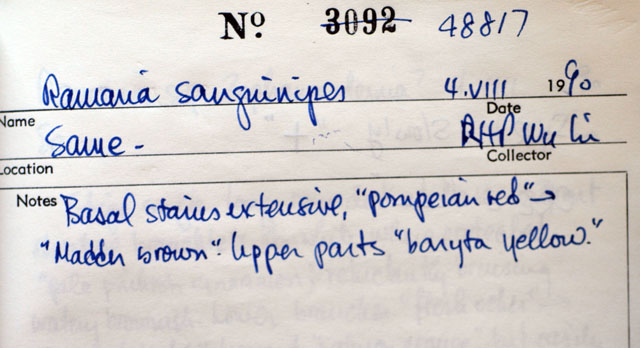 Nº 3092 48817
Ramaria sanguinipes 4.VIII 1990
Name Date
Same - RHP
Location Collector
Notes Basal stains extensive, "pompeian red" →
"Madder brown". Upper parts "baryta yellow."